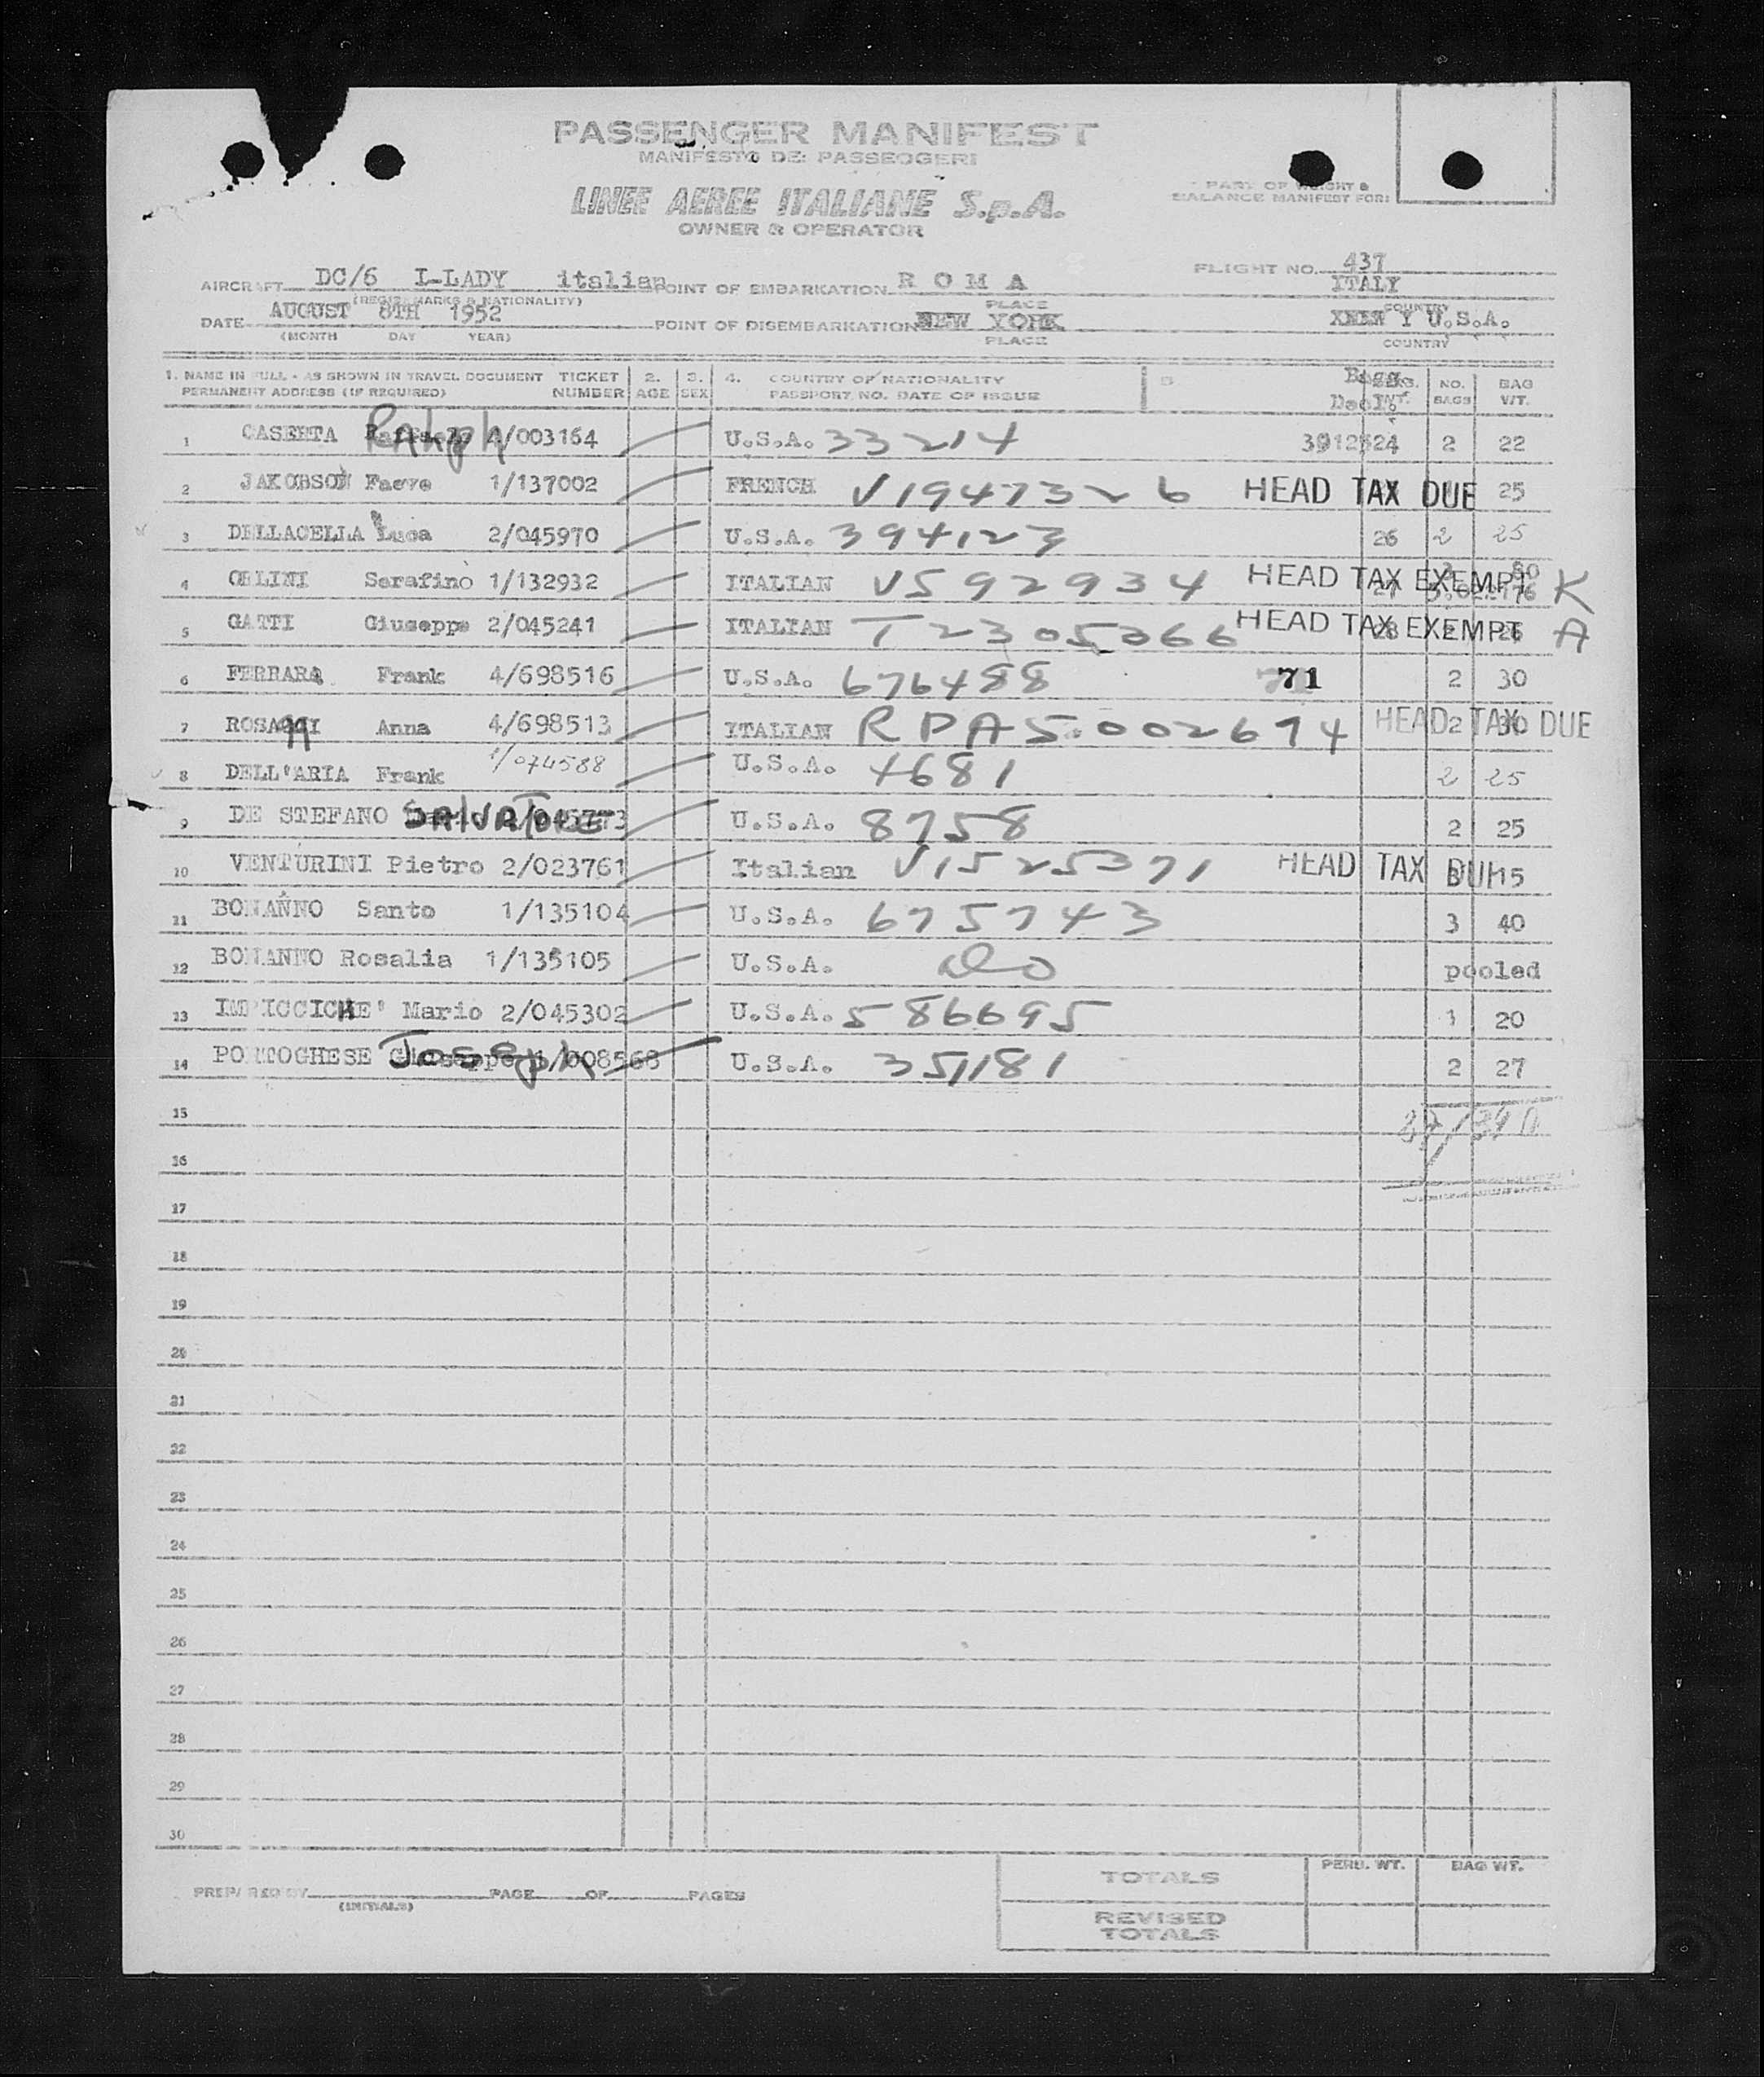 PASSENGER MANIFEST
MANIFESTO DEI PASSEGGERI
LINEE AEREE ITALIANE S.p.A.
OWNER & OPERATOR
PART OF WEIGHT &
BALANCE MANIFEST FOR:
AIRCRAFT DC/6 I-LADY italian POINT OF EMBARKATION R O M A FLIGHT NO. 437 ITALY
(REGIS. MARKS & NATIONALITY) PLACE COUNTRY
DATE AUGUST 8TH 1952 POINT OF DISEMBARKATION NEW YORK U.S.A.
(MONTH DAY YEAR) PLACE COUNTRY
1. NAME IN FULL - AS SHOWN IN TRAVEL DOCUMENT TICKET 2. 3. 4. COUNTRY OF NATIONALITY 5 Bagg. NO. BAG
PERMANENT ADDRESS (IF REQUIRED) NUMBER AGE SEX PASSPORT NO. DATE OF ISSUE Decl. WT. BAGS WT.
1 CASERTA Ralph A/003164 U.S.A. 33214 24 2 22
2 JAKOBSON 1/137002 FRENCH V1947326 HEAD TAX DUE 25
3 DELLACELLA Luca 2/045970 U.S.A. 394123 26 2 25
4 Serafino 1/132932 ITALIAN V592934 HEAD TAX EXEMPT K
5 GATTI Giuseppe 2/045241 ITALIAN T2305366 HEAD TAX EXEMPT A
6 FERRARA Frank 4/698516 U.S.A. 676488 71 2 30
7 Anna 4/698513 ITALIAN HEAD TAX DUE 2 30
8 DELL'ARIA Frank 1/074588 U.S.A. 4681 2 25
9 DE STEFANO SALVATORE U.S.A. 8758 2 25
10 VENTURINI Pietro 2/023761 Italian V1525371 HEAD TAX DUE 15
11 BONANNO Santo 1/135104 U.S.A. 675743 3 40
12 BONANNO Rosalia 1/135105 U.S.A. Do pooled
13 IMPICCICHE' Mario 2/045302 U.S.A. 586695 1 20
14 PORTOGHESE Joseph 1/008568 U.S.A. 351181 2 27
15
16
17
18
19
20
21
22
23
24
25
26
27
28
29
30
PREPARED BY PAGE OF PAGES
(INITIALS)
TOTALS PERU. WT. BAG WT.
REVISED
TOTALS